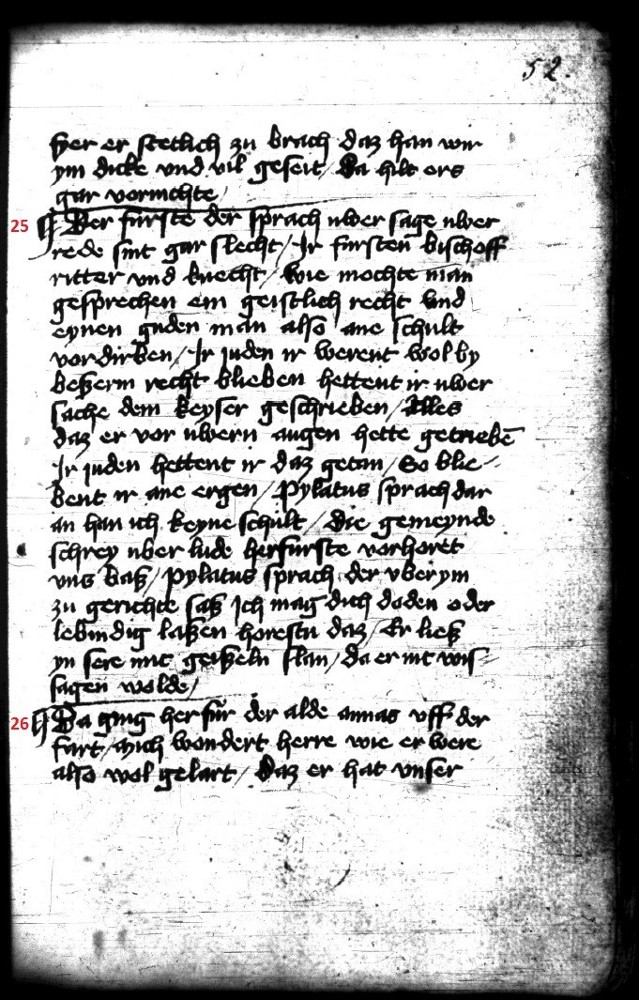 52.
fyer er stetlich zu brach daz han wir
ym dicke vnd vil geseit / Da hilt ers
gar vornichte /
25 Der furste der sprach uwer sage uwer
rede sint gar slecht / Ir fursten bischoff
ritter vnd knecht / wie mochte man
gesprechen ein geistlich recht vnd
eynen guden man also ane schult
vordirben / Ir juden ir werent wol by
beßerm recht blieben hettent ir uwer
sache dem keyser geschrieben / Alles
daz er vor uwern augen hette getriebē
Ir juden hettent ir daz getan / So blie-
bent ir ane ergen / Pylatus sprach dar
an han ich keyne schult / Die gemeynde
schrey uber lude her furste vorhoret
vns baß / Pylatus sprach der vber ym
zu gerichte saß Ich mag dich doden oder
lebindig laßen horestu daz / Er ließ
yn sere mit geißeln slan / da er nit wis-
sagen wolde /
26 Da ging her fur der alde annas vff der
fart / mich wondert herre wie er were
also wol gelart / Daz er hat vnser